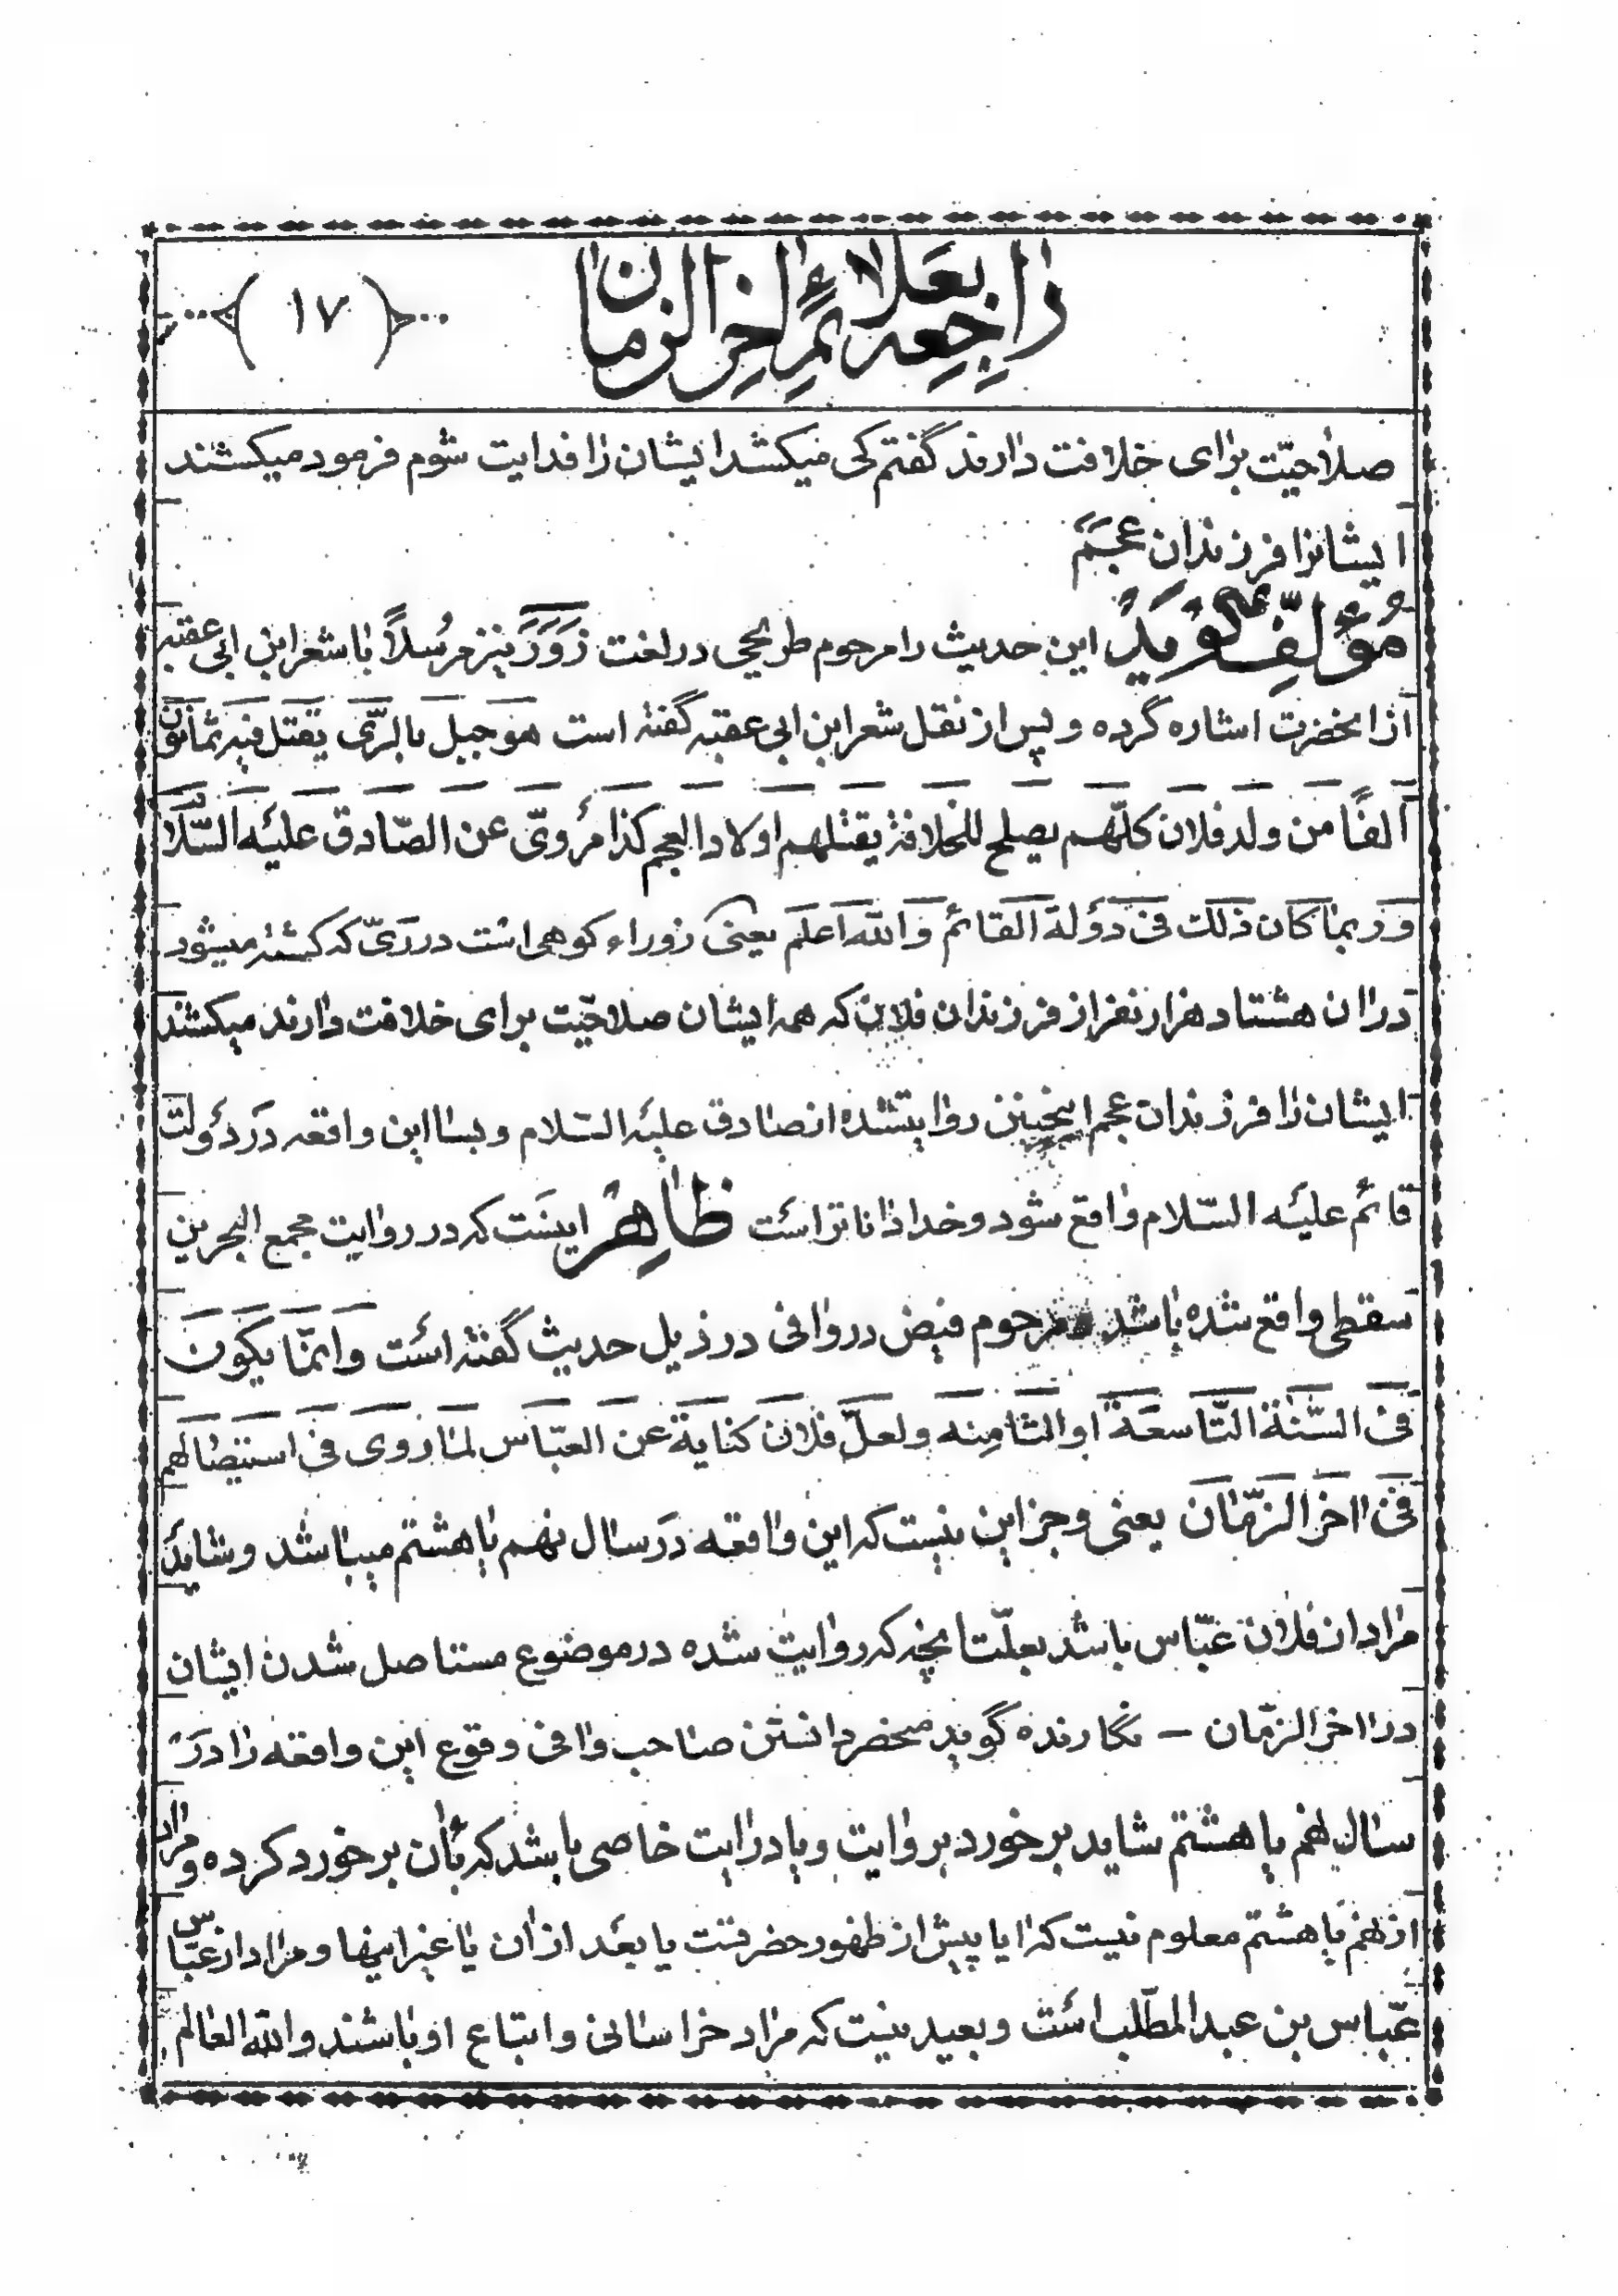 راجعه بعلائم آخر الزمان
﴿ ١٧ ﴾
صلاحیّت برای خلافت دارند گفتم کی میکشد ایشان را فدایت شوم فرمود میکشند
ایشانرا فرزندان عجم
مؤلف گوید این حدیث را مرحوم طریحی در لغت زَوَرَ نیز مرُسلاً با شعر ابن ابی عقبه
از انحضرت اشاره کرده و پس از نقل شعر ابن ابی عقبه گفته است هو جبل بالرّی یقتل فیه ثمانون
الفًا من ولد فلان کلّهم یصلح للخلافة یقتلهم اولاد العجم کذا مرُویّ عن الصّادق علیه السّلام
و ربما کان ذلک فی دؤلة القائم و الله اعلم یعنی زوراء کوهی است در ریّ که کشته میشود
در ان هشتاد هزار نفر از فرزندان فلان که همه ایشان صلاحیّت برای خلافت دارند میکشند
ایشان را فرزندان عجم اینچنین روایتشده از صادق علیه السّلام و بسا این واقعه در دؤلت
قائم علیه السّلام واقع شود و خدا داناتر است ظاهر اینست که در روایت مجمع البحرین
سقطی واقع شده باشد و مرحوم فیض در وافی در ذیل حدیث گفته است و انمّا یکون
فی السّنة التّاسعة او الثامنه و لعلّ فلان کنایة عن العبّاس لما روی فی استیصالهم
فی اخر الزّمان یعنی و جز این نیست که این واقعه در سال نهم یا هشتم میباشد و شاید
مراد از فلان عبّاس باشد بعلّت انچه که روایت شده در موضوع مستاصل شدن ایشان
در اخر الزّمان – نگارنده گوید منحضر دانستن صاحب وافی وقوع این واقعه را در
سال نهم یا هشتم شاید برخورد بروایت و یا درایت خاصی باشد که بآن برخورد کرده و مراد
از نهم یا هشتم معلوم نیست که ایا پیش از ظهور حضرتت یا بعد از ان یا غیر اینها و مراد از عبّاس
عبّاس بن عبد المطلّب است و بعید نیست که مراد خراسانی و اتباع او باشند و الله العالم